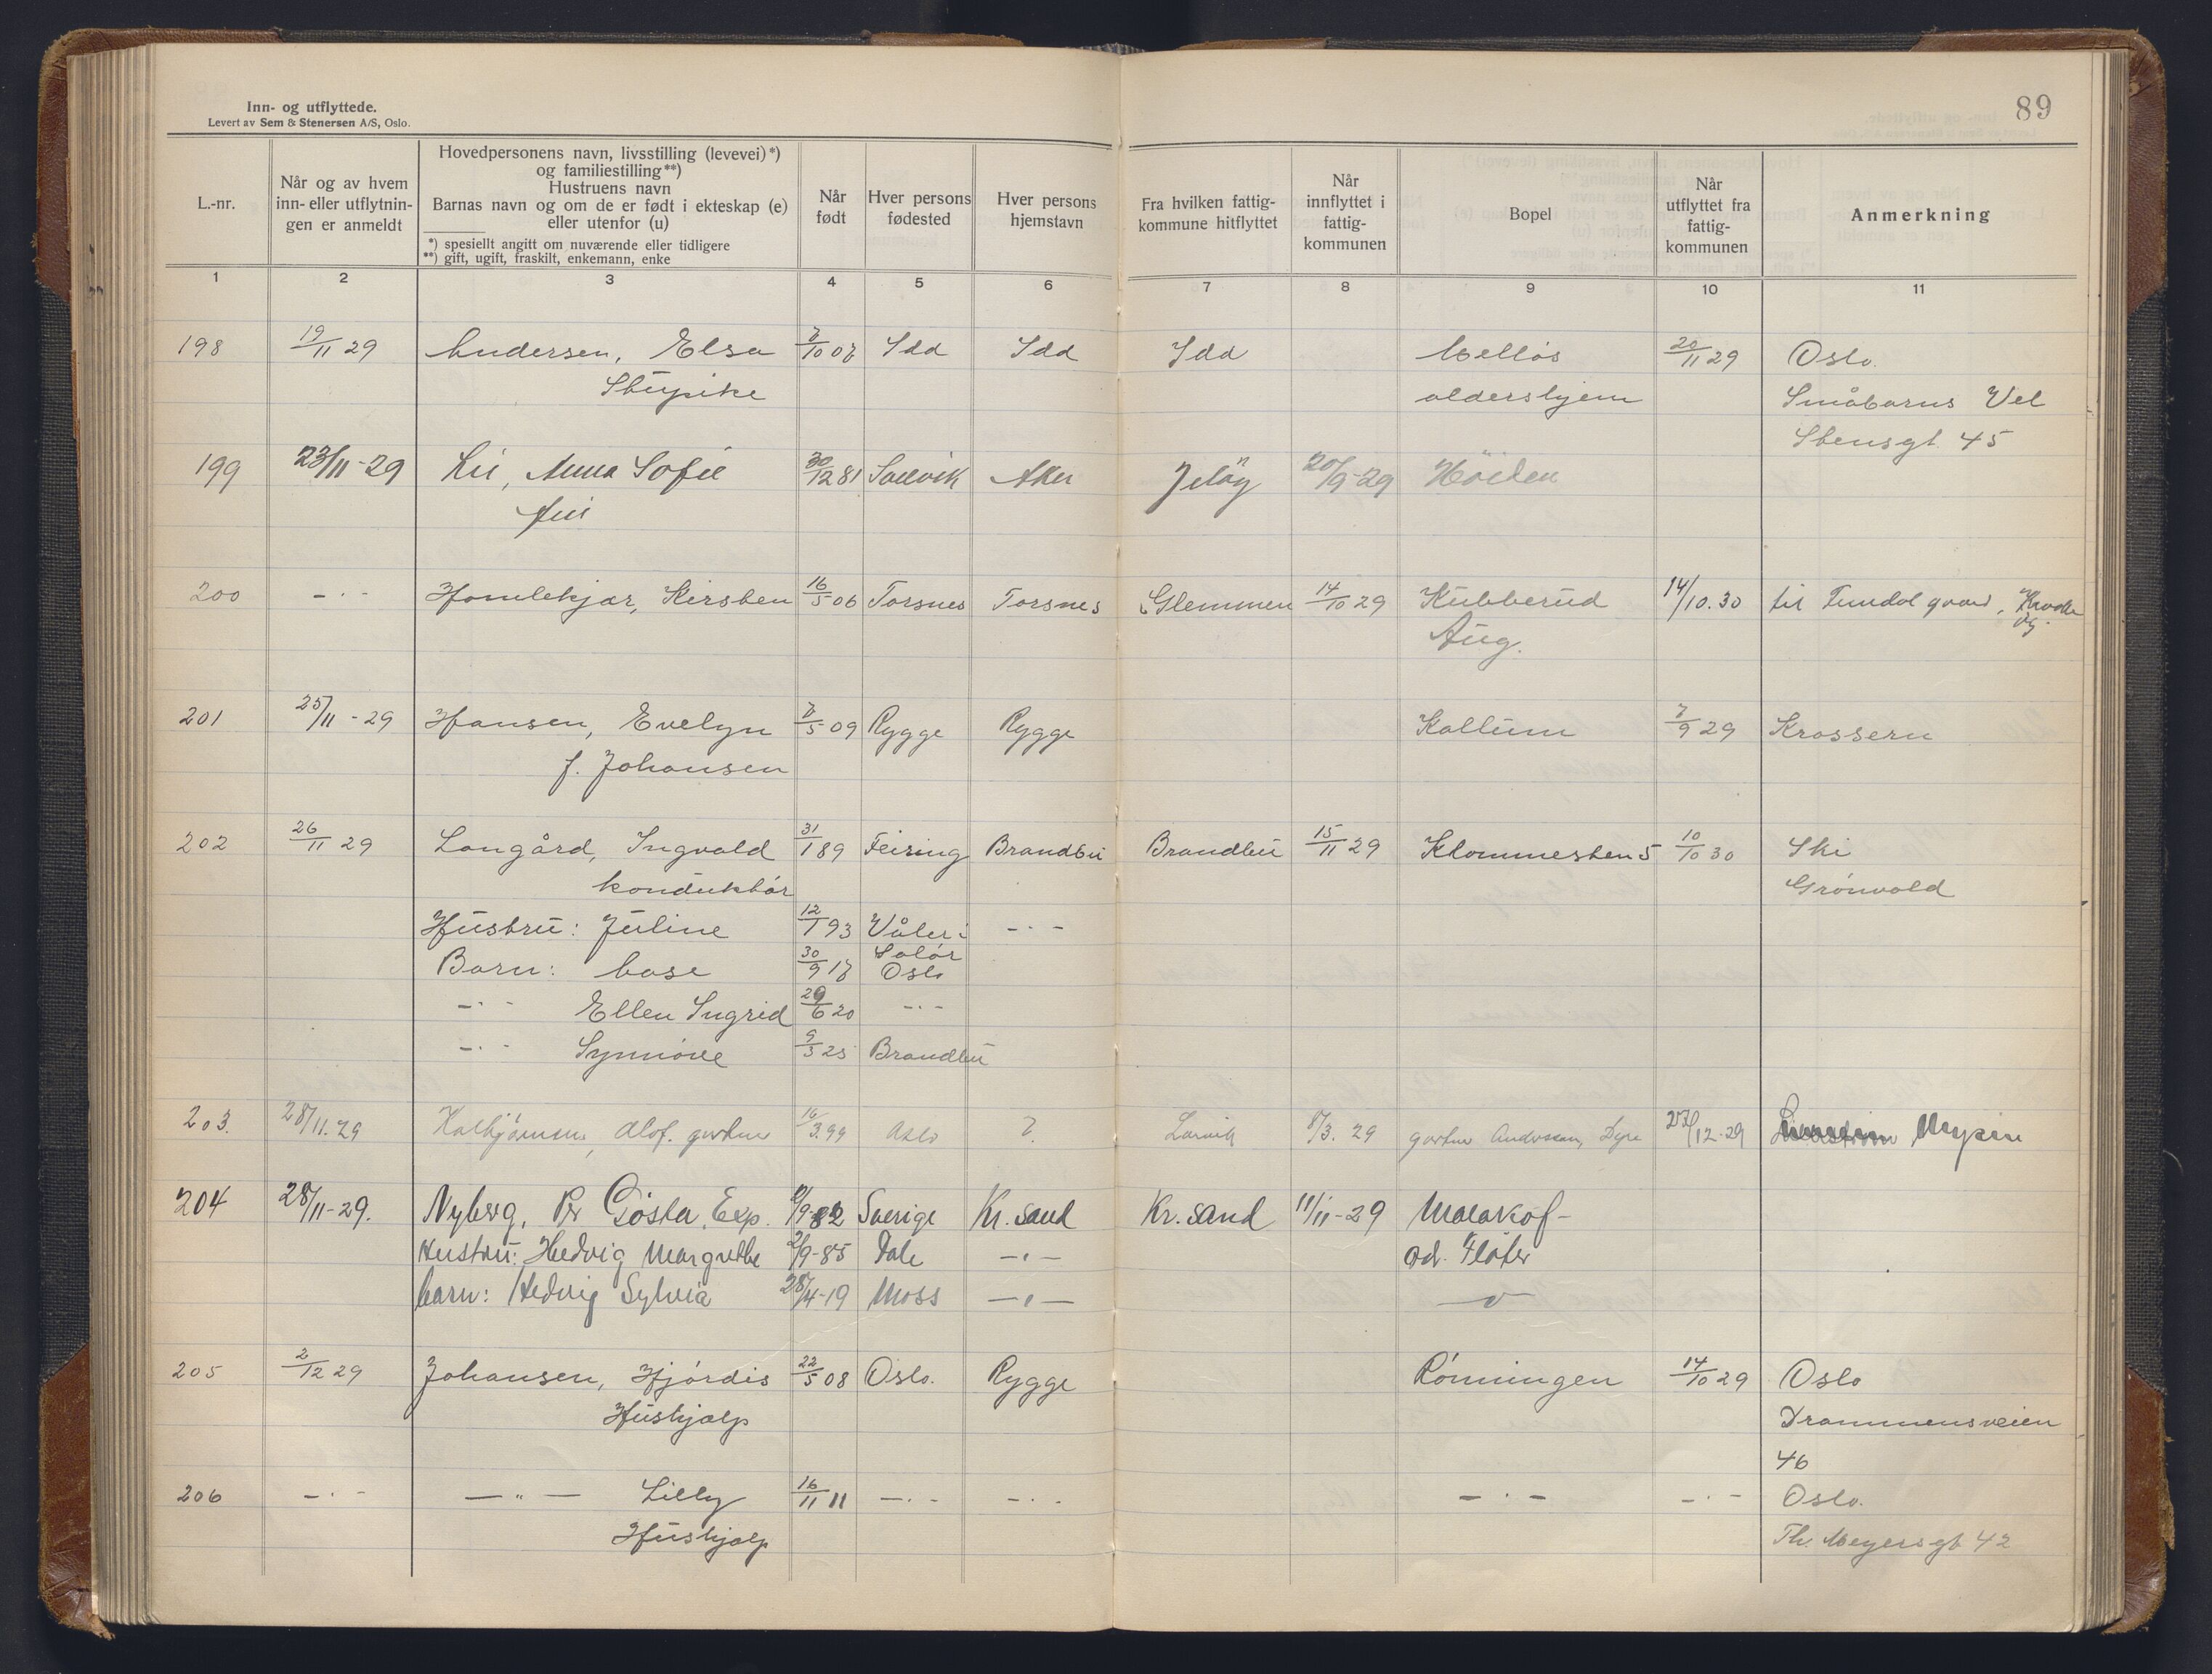 89
Inn- og utflyttede.
Levert av Sem & Stenersen A/S, Oslo.
L.-nr.
Når og av hvem
inn- eller utflytnin-
gen er anmeldt
Hovedpersonens navn, livsstilling (levevei)*)
og familiestilling**)
Hustruens navn
Barnas navn og om de er født i ekteskap (e)
eller utenfor (u)
*) spesiellt angitt om nuværende eller tidligere
**) gift, ugift, fraskilt, enkemann, enke
Når
født
Hver persons
fødested
Hver persons
hjemstavn
Fra hvilken fattig-
kommune hitflyttet
Når
innflyttet i
fattig-
kommunen
Bopel
Når
utflyttet fra
fattig-
kommunen
Anmerkning
1 2 3 4 5 6 7 8 9 10 11
198 19/11 29 Andersen, Elsa 7/10 07 Idd Idd Idd Melløs 20/11 29 Oslo.
Stuepike aldershjem Småbarns Vel
Stensgt. 45
199 23/11-29 Lie, Anna Sofie 30/12 81 Aker Jeløy 20/9-29 Höiden
200 -·- Homlekjær, Kirsten 16/5 06 Torsnes Torsnes Glemmen 14/10 29 Kubberud 14/10.30 til
Aug.
201 25/11-29 Hansen, Evelyn 7/5 09 Rygge Rygge Kallum 7/9 29 Krossern
f. Johansen
202 26/11 29 Langård, Ingvald 31/1 89 Feiring Brandbu Brandbu 15/11 29 Klommesten 5 10/10 30 Ski
konduktør Grønvold
Hustru: Juline 12/1 93 Våler i -·-
Solør
Barn: Aase 30/9 17 Oslo
-·- Ellen Ingrid 29/6 20 -·-
-·- Synnøve 9/3 25 Brandbu
203. 28/11.29 Kalbjørnsen, Olof. gartner 16/3.99 Oslo ? Larvik 8/3. 29 gartner Andersen, Dyre 27/12-29 Mysen
204 28/11-29. Nyberg, Per Gösta, Exp. Sverige Kr. sand Kr. sand 11/11-29 Malakof-
Hustru: Hedvig Margrethe 2/9-85 Dale -·- od. Fløter
barn: Hedvig Sylvia 28/4-19 Moss -·-
205 2/12 29 Johansen, Hjørdis 22/5 08 Oslo. Rygge Rønningen 14/10 29 Oslo
Hushjælp Drammensveien
46
206 -·- -"- Lilly 16/11 11 -·- -·- -·- -·- Oslo.
Hushjælp Th. Meyersgt 42